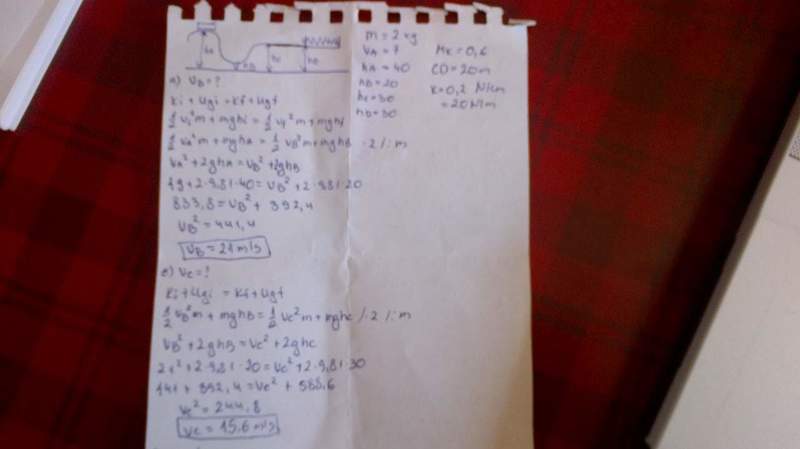 m = 2 kg
VA = 7
hA = 40
hB = 20
hc = 30
hD = 30
Mk = 0,6
CD = 20m
K = 0,2 N/cm
= 20 N/m
hA
hB
hc
hD
a) VB = ?
Ki + Ugi = Kf + Ugf
1/2 Vi²m + mghi = 1/2 Vf²m + mghf
1/2 VA²m + mghA = 1/2 VB²m + mghB ·2 /:m
VA² + 2ghA = VB² + 2ghB
49 + 2·9,81·40 = VB² + 2·9,81·20
833,8 = VB² + 392,4
VB² = 441,4
VB = 21 m/s
Vc = ?
Ki + Ugi = Kf + Ugf
1/2 VB²m + mghB = 1/2 Vc²m + mghc /·2 /:m
VB² + 2ghB = Vc² + 2ghc
21² + 2·9,81·20 = Vc² + 2·9,81·30
441 + 392,4 = Vc² + 588,6
Vc² = 244,8
Vc = 15,6 m/s